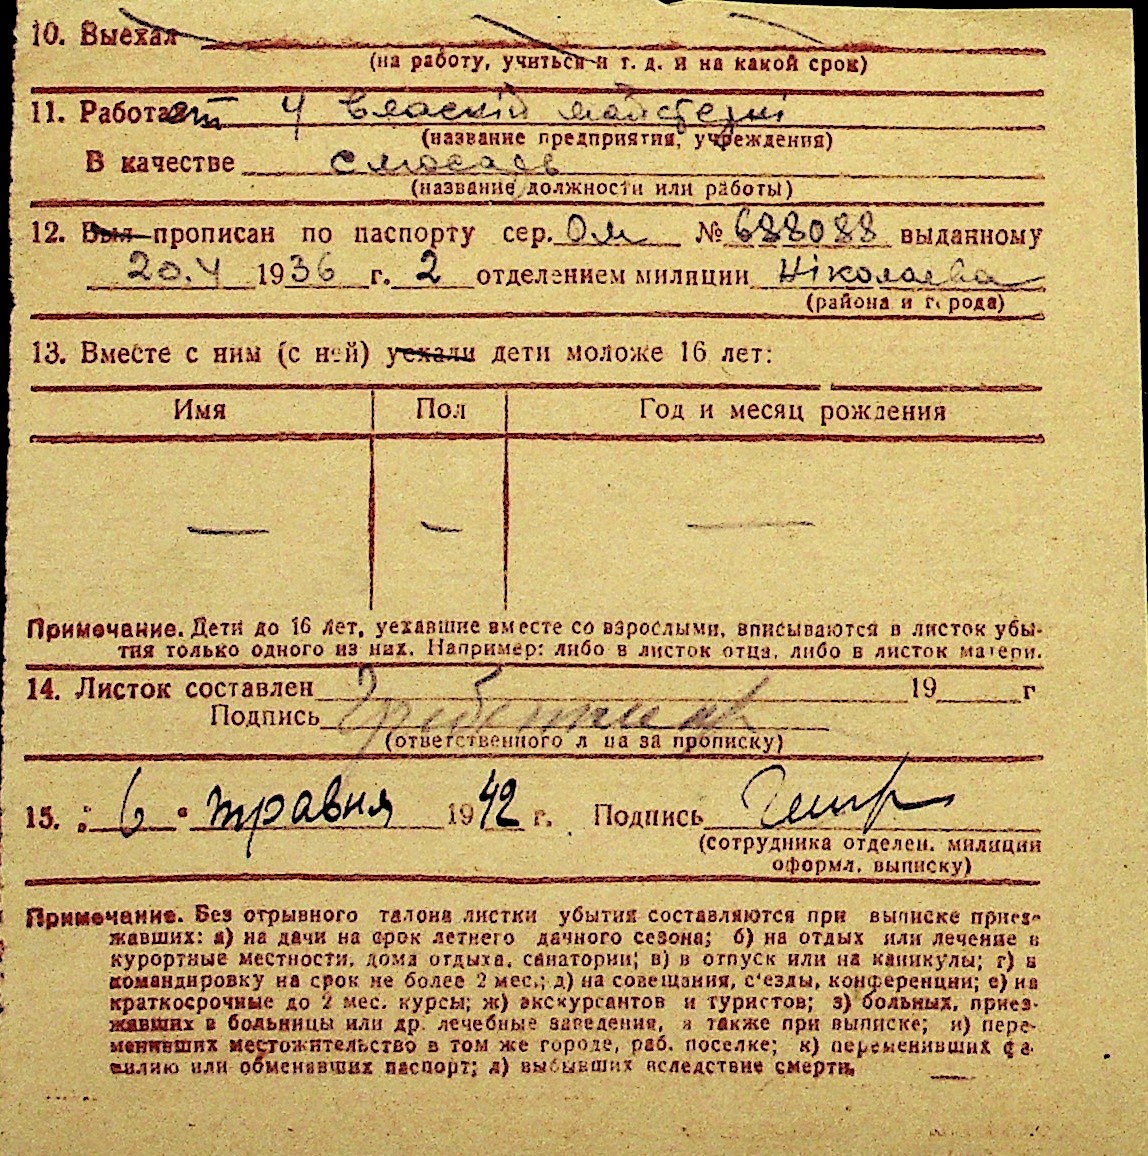 10. Выехал
(на работу, учиться и т. д. и на какой срок)
11. Работает У власній майстерні
(название предприятия, учреждения)
В качестве слюсаєв
(название должности или работы)
12. Был прописан по паспорту сер. Ом № 688088 выданному
20.V 1936 г. 2 отделением милиции Ніколаєва
(района и города)
13. Вместе с ним (с ней) уехали дети моложе 16 лет:
Имя Пол Год и месяц рождения
— — —
Примечание. Дети до 16 лет, уехавшие вместе со взрослыми, вписываются в листок убы-
тия только одного из них. Например: либо в листок отца, либо в листок матери.
14. Листок составлен 19 г
Подпись
(ответственного лица за прописку)
15. „ 6 “ травня 1942 г. Подпись
(сотрудника отделен. милиции
оформл. выписку)
Примечание. Без отрывного талона листки убытия составляются при выписке приез-
жавших: а) на дачи на срок летнего дачного сезона; б) на отдых или лечение в
курортные местности, дома отдыха, санатории; в) в отпуск или на каникулы; г) в
командировку на срок не более 2 мес.; д) на совещания, с'езды, конференции; е) на
краткосрочные до 2 мес. курсы; ж) экскурсантов и туристов; з) больных, приез-
жавших в больницы или др. лечебные заведения, а также при выписке; и) пере-
менивших местожительство в том же городе, раб. поселке; к) переменивших фа-
милию или обменявших паспорт; л) выбывших вследствие смерти.